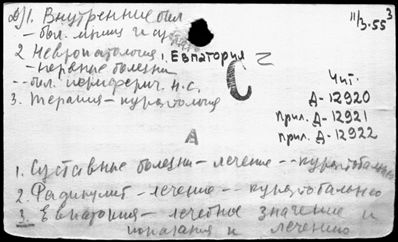 1. Внутренние бол
11/3.553
- бол. мышц и
2 Невропатология 1. Евпатория 2
- нервные болезни
- бол. периферич. н.с.
3. Терапия - курортология
С
Чит.
Д-12920
Прил. Д-12921
прил. Д-12922
А
1. Суставные болезни - лечение -- курортобальнео
2. Радикулит - лечение -- курортобальнео
3. Евпатория - лечебное значение и
показания к лечению